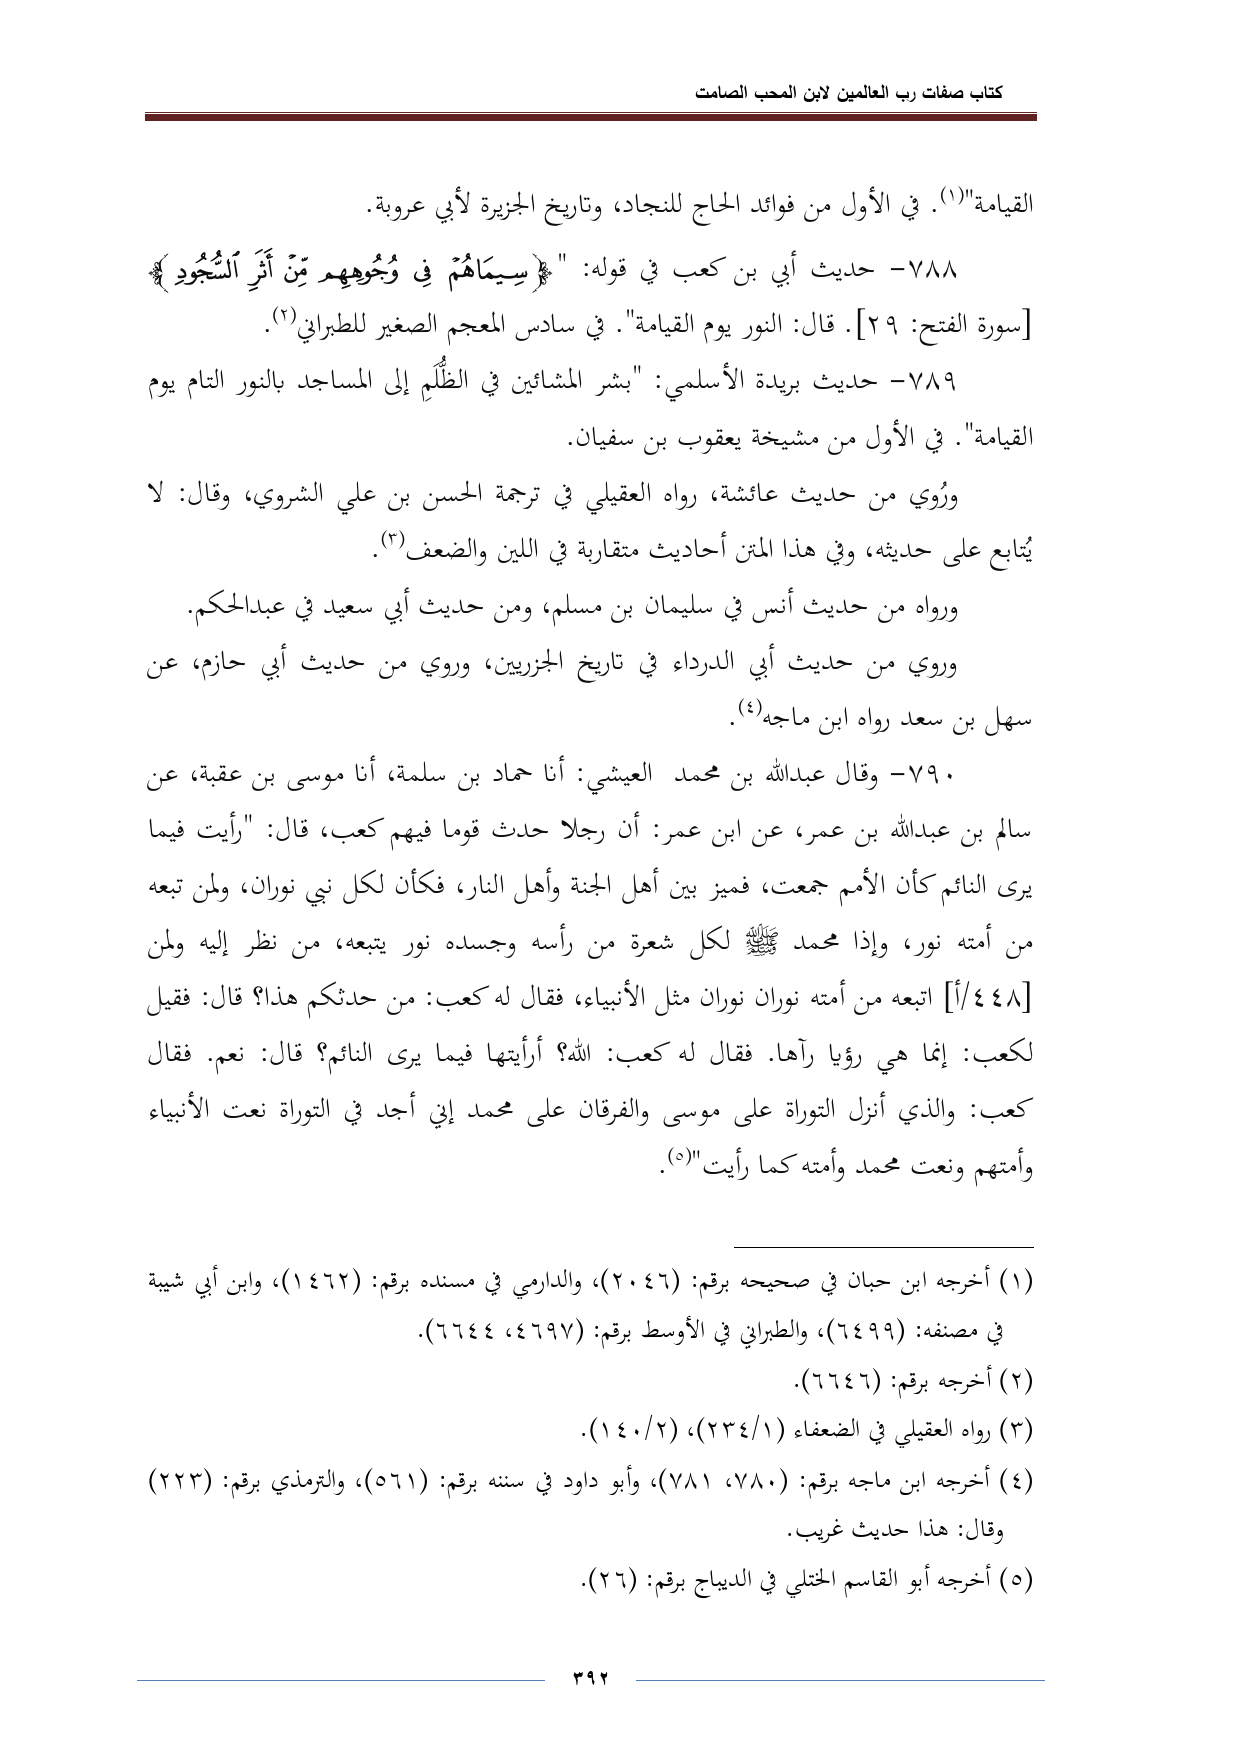 كتاب صفات رب العالمين لابن المحب الصامت
القيامة"(١). في الأول من فوائد الحاج للنجاد، وتاريخ الجزيرة لأبي عروبة.
٧٨٨- حديث أبي بن كعب في قوله: "﴿سِيمَاهُمْ فِي وُجُوهِهِم مِّنْ أَثَرِ ٱلسُّجُودِ﴾
[سورة الفتح: ٢٩]. قال: النور يوم القيامة". في سادس المعجم الصغير للطبراني(٢).
٧٨٩- حديث بريدة الأسلمي: "بشر المشائين في الظُّلَمِ إلى المساجد بالنور التام يوم
القيامة". في الأول من مشيخة يعقوب بن سفيان.
ورُوي من حديث عائشة، رواه العقيلي في ترجمة الحسن بن علي الشروي، وقال: لا
يُتابع على حديثه، وفي هذا المتن أحاديث متقاربة في اللين والضعف(٣).
ورواه من حديث أنس في سليمان بن مسلم، ومن حديث أبي سعيد في عبدالحكم.
وروي من حديث أبي الدرداء في تاريخ الجزريين، وروي من حديث أبي حازم، عن
سهل بن سعد رواه ابن ماجه(٤).
٧٩٠- وقال عبدالله بن محمد العيشي: أنا حماد بن سلمة، أنا موسى بن عقبة، عن
سالم بن عبدالله بن عمر، عن ابن عمر: أن رجلا حدث قوما فيهم كعب، قال: "رأيت فيما
يرى النائم كأن الأمم جمعت، فميز بين أهل الجنة وأهل النار، فكأن لكل نبي نوران، ولمن تبعه
من أمته نور، وإذا محمد ﷺ لكل شعرة من رأسه وجسده نور يتبعه، من نظر إليه ولمن
[٤٤٨/أ] اتبعه من أمته نوران نوران مثل الأنبياء، فقال له كعب: من حدثكم هذا؟ قال: فقيل
لكعب: إنما هي رؤيا رآها. فقال له كعب: الله؟ أرأيتها فيما يرى النائم؟ قال: نعم. فقال
كعب: والذي أنزل التوراة على موسى والفرقان على محمد إني أجد في التوراة نعت الأنبياء
وأمتهم ونعت محمد وأمته كما رأيت"(٥).
(١) أخرجه ابن حبان في صحيحه برقم: (٢٠٤٦)، والدارمي في مسنده برقم: (١٤٦٢)، وابن أبي شيبة
في مصنفه: (٦٤٩٩)، والطبراني في الأوسط برقم: (٤٦٩٧، ٦٦٤٤).
(٢) أخرجه برقم: (٦٦٤٦).
(٣) رواه العقيلي في الضعفاء (٢٣٤/١)، (١٤٠/٢).
(٤) أخرجه ابن ماجه برقم: (٧٨٠، ٧٨١)، وأبو داود في سننه برقم: (٥٦١)، والترمذي برقم: (٢٢٣)
وقال: هذا حديث غريب.
(٥) أخرجه أبو القاسم الختلي في الديباج برقم: (٢٦).
٣٩٢